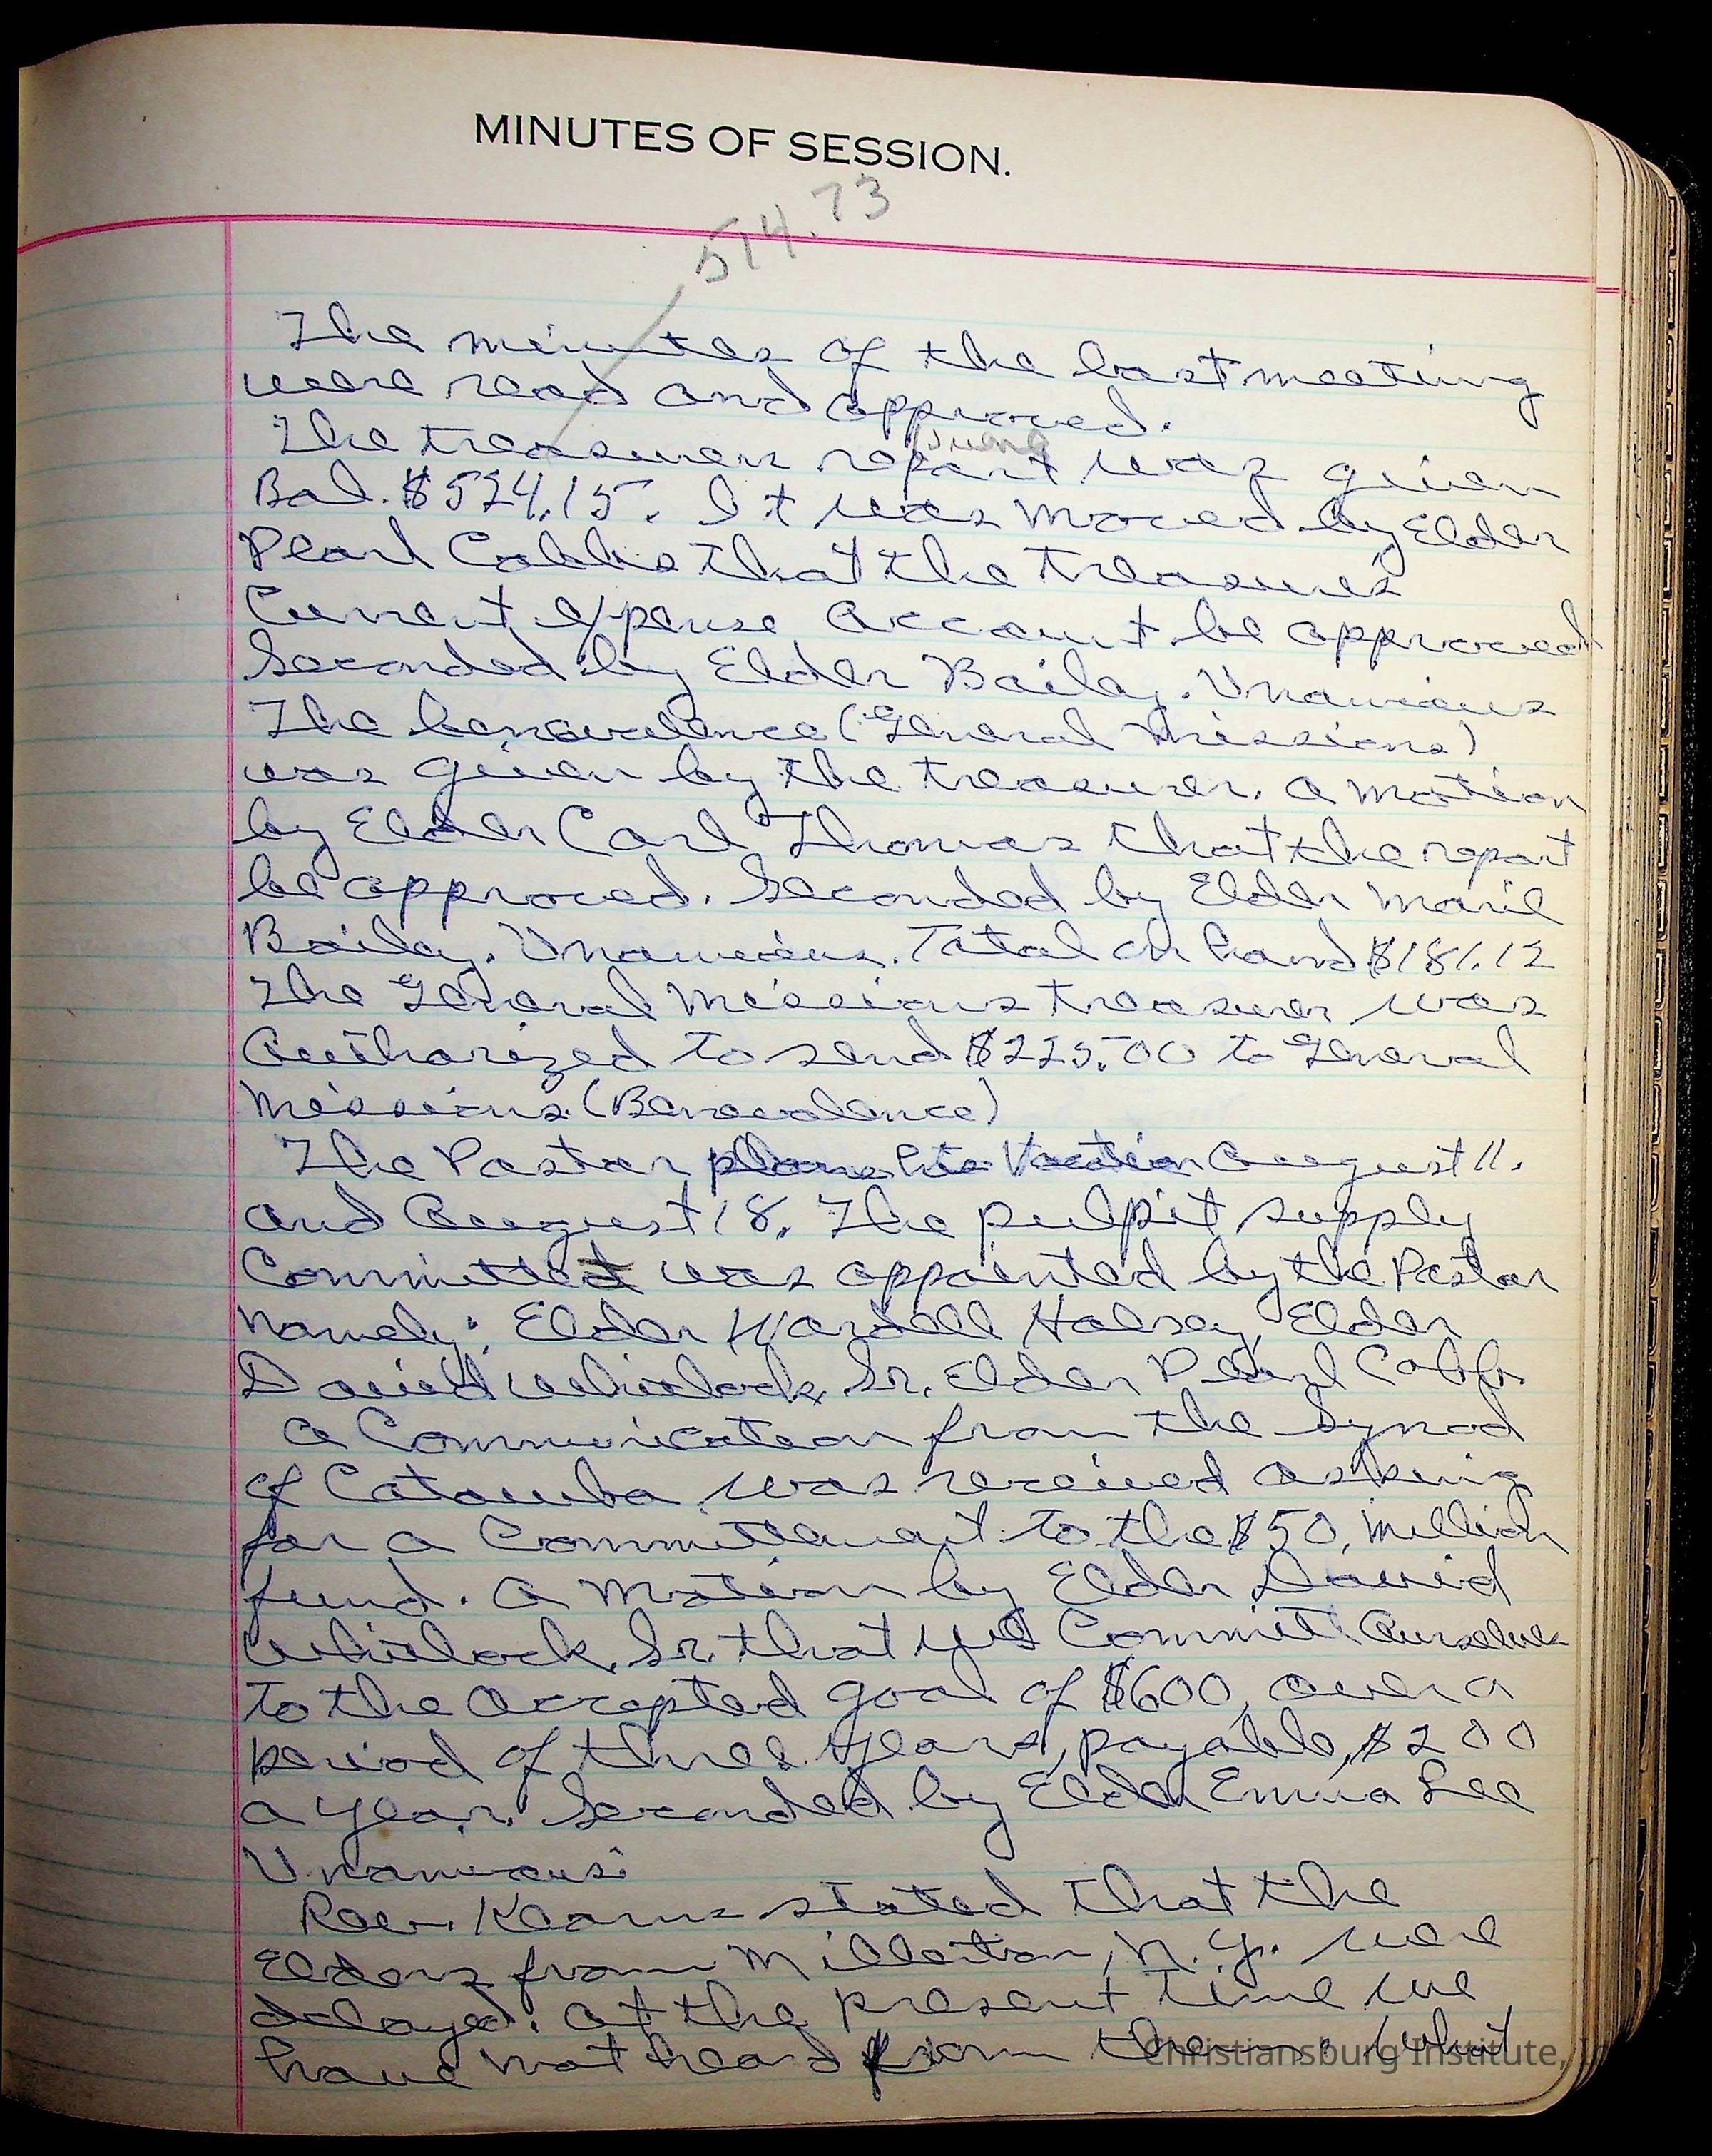 MINUTES OF SESSION.
514.73
The minutes of the last meeting
were read and approved.
The treasurer report was given
Bal. $524.15. It was moved by Elder
Pearl Cobbs that the treasure's
Current expense account be approved
Seconded by Elder Bailey. Unamious
The benevelence (General Missions)
was given by the treasurer. a motion
by Elder Carl Thomas that the report
be approved. Seconded by Elder Marie
Bailey. Unamious. Total on hand $181.12
The General Missions treasurer was
Authorized to send $225.00 to General
Missions (Benevolence)
The Pastor plans his Vacation August 11.
and August 18. The pulpit supply
Committed was appointed by the Pastor
Namely: Elder Wardell Halsey, Elder
David Whirlock, Sr. Elder Pearl Cobbs.
a Communication from the Synod
of Catawba was received asking
for a Committment to the $50, Million
fund. a motion by Elder David
Whirlock, Sr. that we Commit Ourselves
to the accepted goal of $600, over a
period of three years, payable, $200
a year. Seconded by Elder Emma Lee
Unamious.
Rev. Kearns stated that the
Elders from Millerton, N.Y. were
delayed. at the present time we
have not heard from them. What
Christiansburg Institute, In